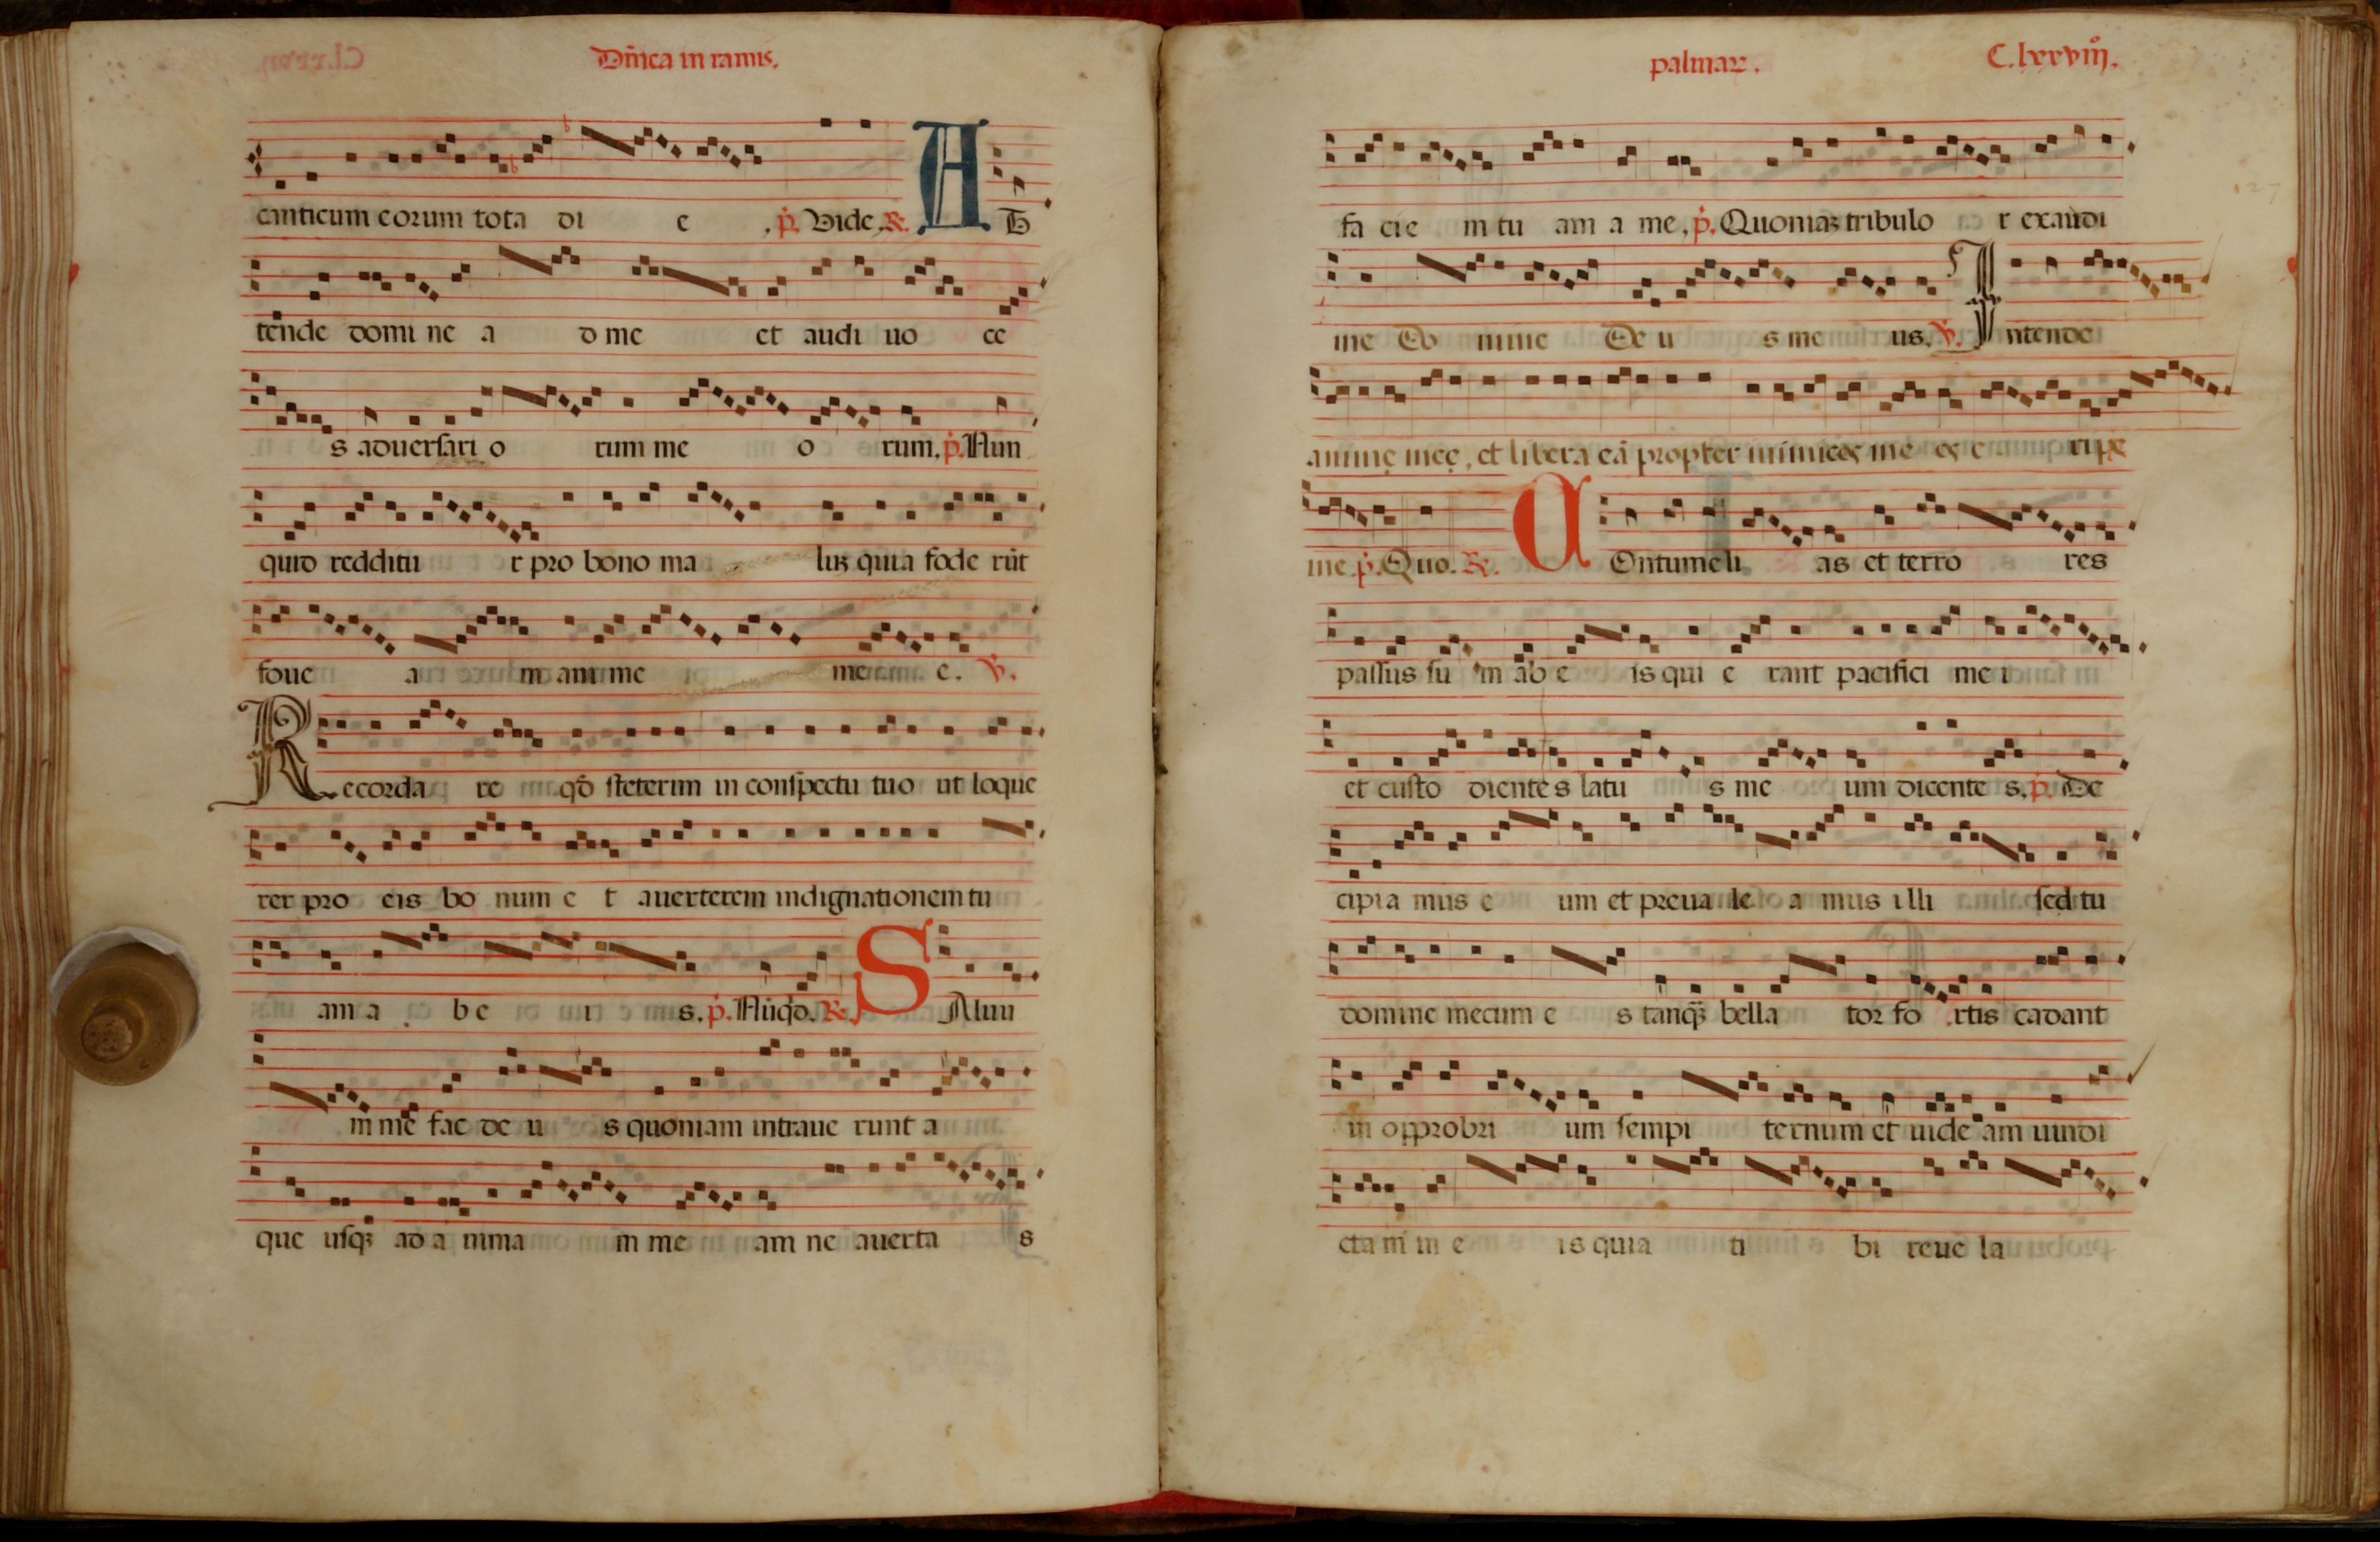 Dñica in ramis.
canticum eorum tota di e . p. Vide. R. A D
tende domi ne a d me et audi uo ce
s aduersari o rum me o rum. p. Nun
quid redditu r pro bono ma lũ quia fode rũt
foue a m anime me e. V.
Recorda re qd̃ steterim in conspectu tuo ut loque
rer pro eis bo num e t auerterem indignationem tu
am a b e i s. p. Nũqd. R. S Aluu
m me fac de u s quoniam intraue runt a
que usqꝫ ad a nima m me am ne auerta s
palmaꝝ. C. lxxviij.
fa cie m tu am a me. p. Quoniaꝫ tribulo r exaudi
me Do mine De u s me us. V. Intende
anime mee, et libera eã propter inimicos me os e ripe
me p. Quo. R. C Ontumeli as et terro res
passus su m ab e is qui e rant pacifici me i
et custo diente s latu s me um dicente s. p. De
cipia mus e um et preua le a mus illi sed tu
domine mecum e s tanqꝫ bella tor fo rtis cadant
in opprobri um sempi ternum et uide am uindi
cta m in e is quia ti bi reue la